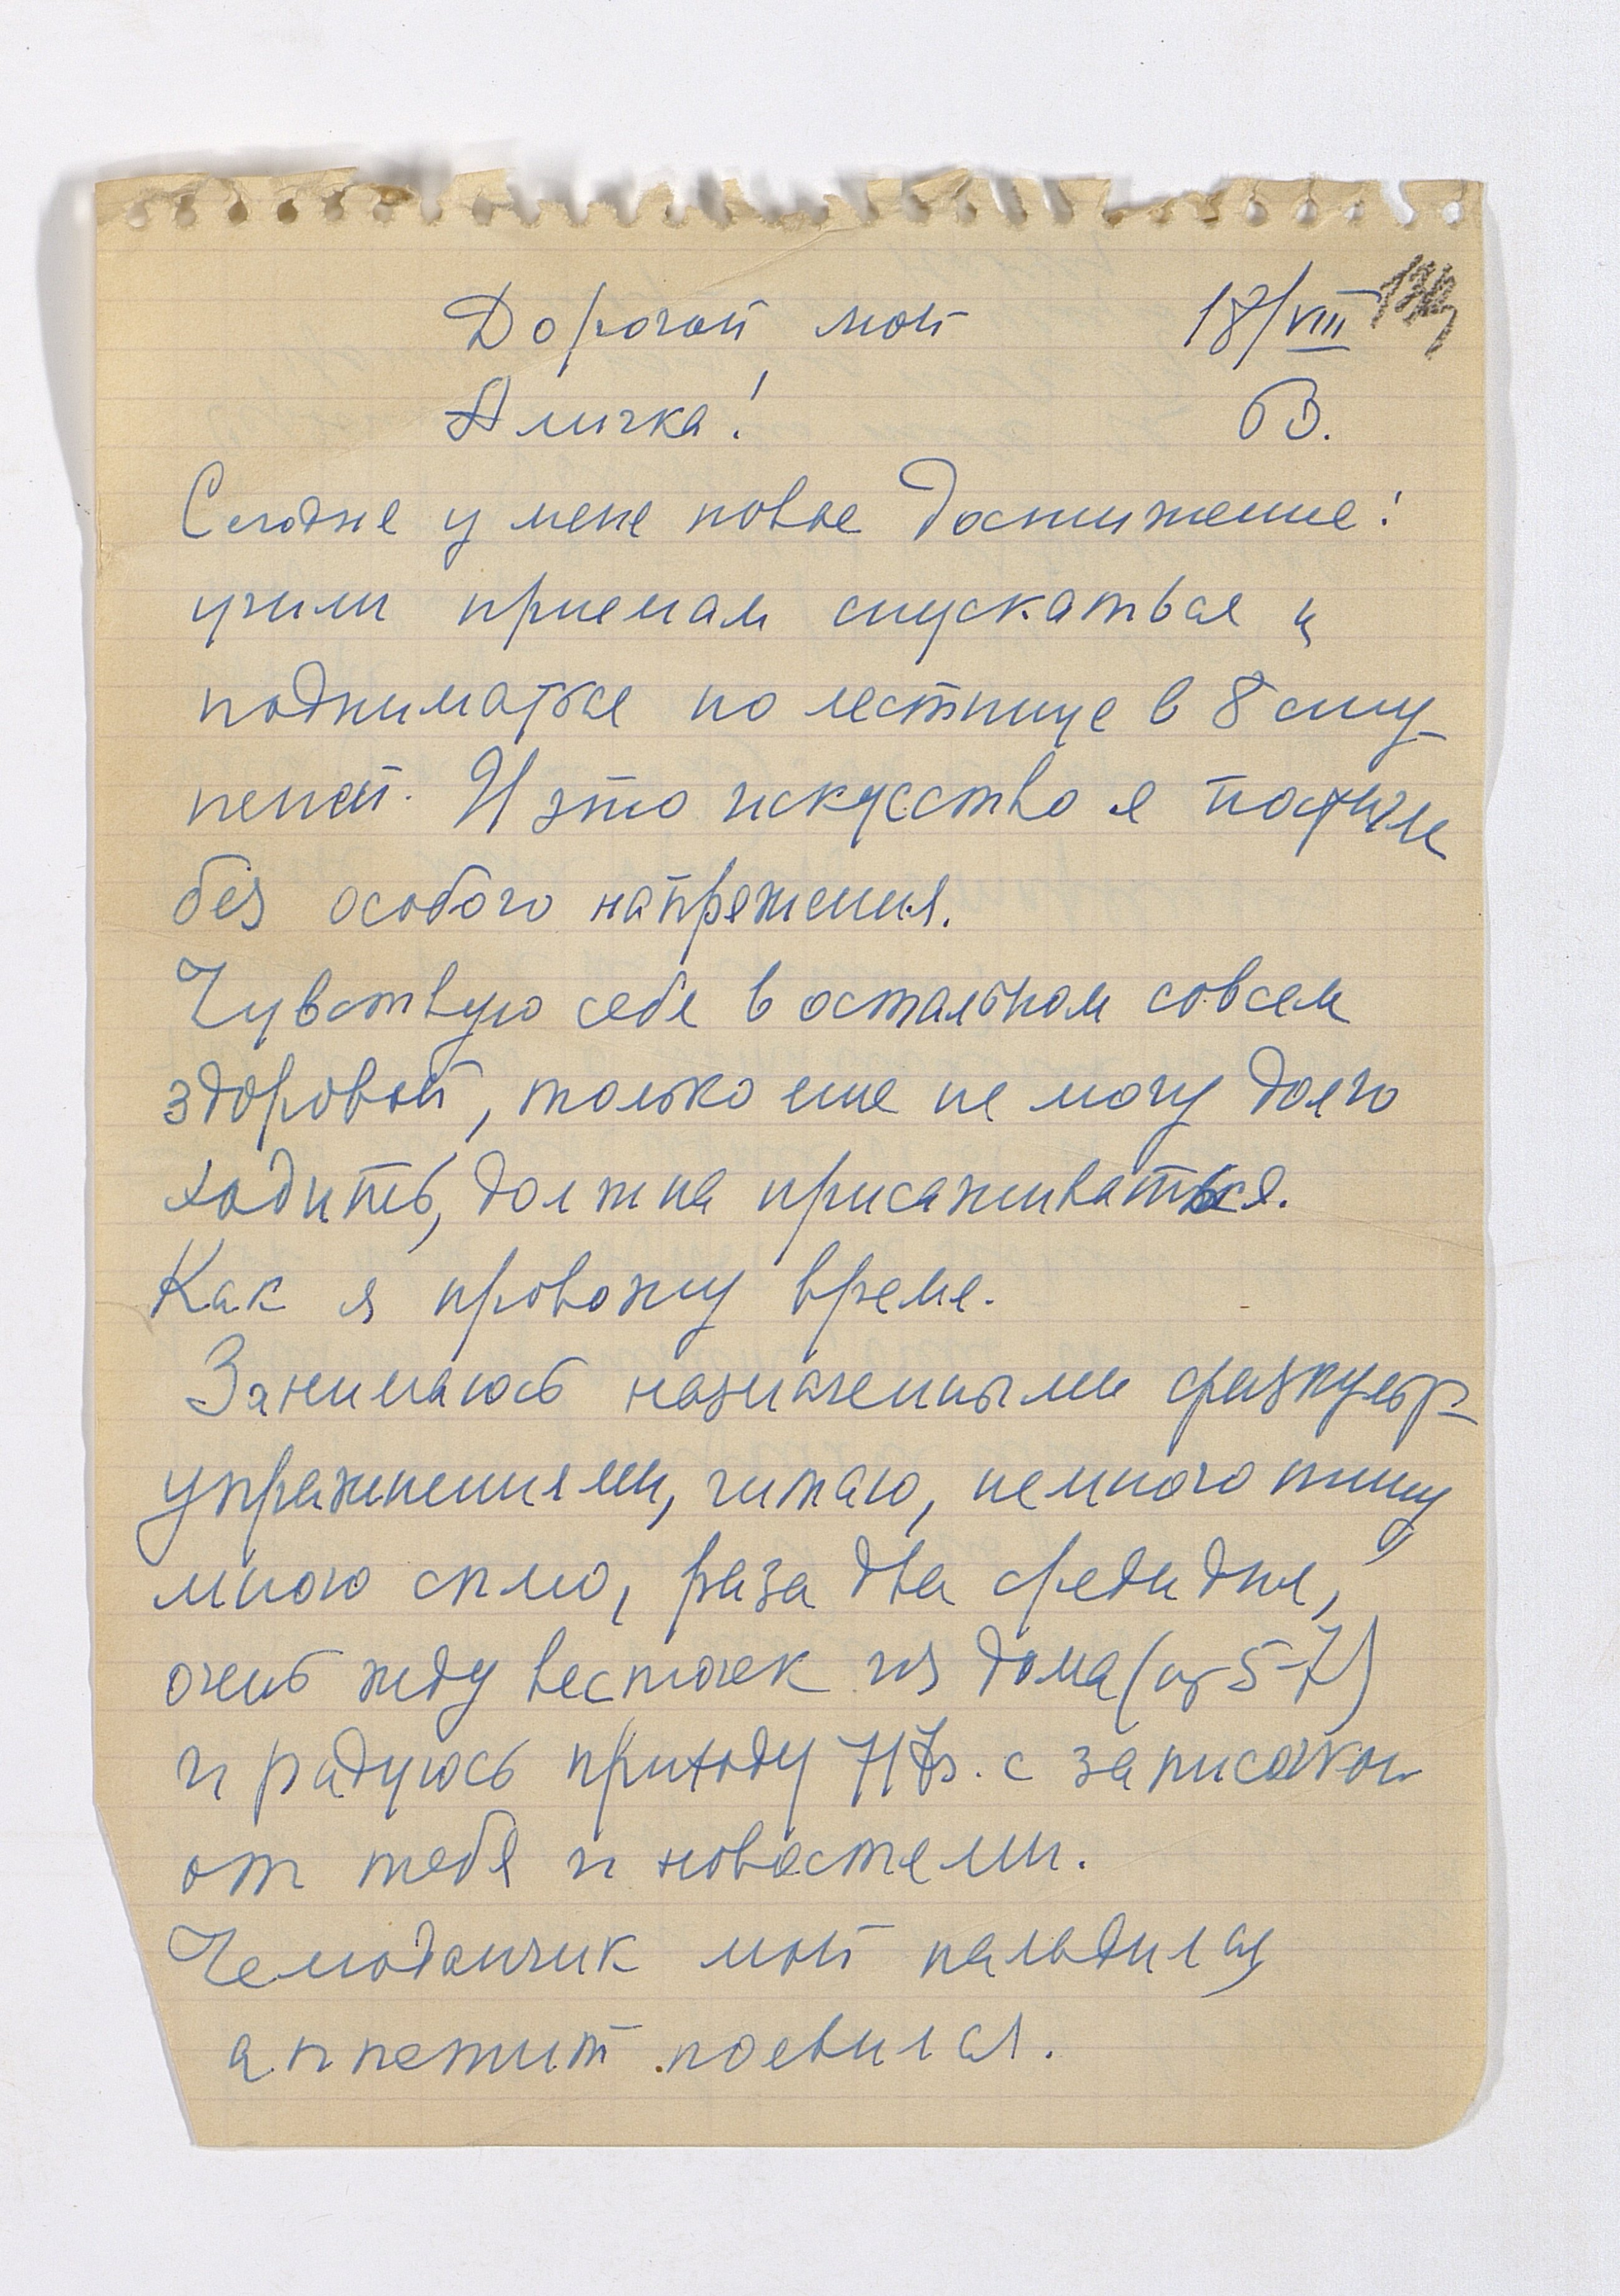 Дорогой мой 18/VIII
Аличка! В.
Сегодня у меня новое достижение:
учили приемам спускаться и
подниматься по лестнице в 8 сту-
пеней. И это искусство я постигла
без особого напряжения.
Чувствую себя в остальном совсем
здоровой, только еще не могу долго
ходить, должна присаживаться.
Как я провожу время.
Занимаюсь назначенными физкульт-
упражнениями, читаю, немного пишу,
много сплю, раза два среди дня,
очень жду весточек из дома (от 5-7)
и радуюсь приходу с записочкой
от тебя и новостями.
Чемоданчик мой наладился,
аппетит появился.